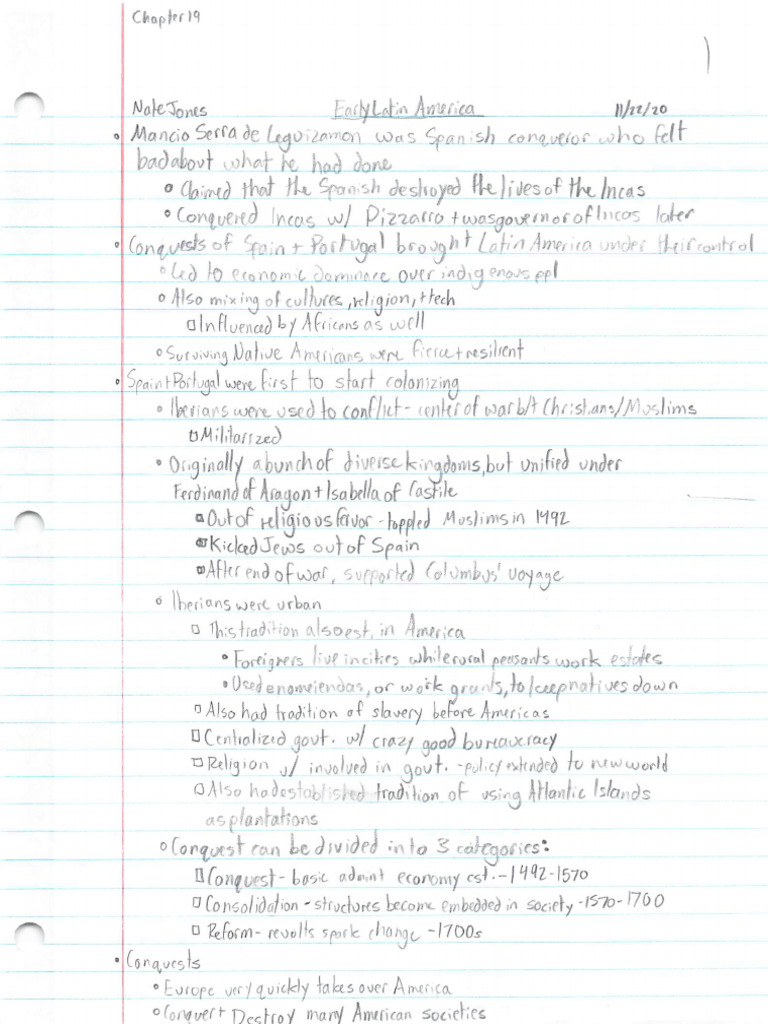 Chapter 19
1
Nate Jones Early Latin America 11/22/20
• Mancio Serra de Leguizamon was Spanish conqueror who felt
bad about what he had done
• Claimed that the Spanish destroyed the lives of the Incas
• Conquered Incas w/ Pizzarro + was governor of Incas later
• Conquests of Spain + Portugal brought Latin America under their control
• Led to economic dominace over indigenous ppl
• Also mixing of cultures, religion, + tech
□ Influenced by Africans as well
• Surviving Native Americans were fierce + resilient
• Spain + Portugal were first to start colonizing
• Iberians were used to conflict - center of war b/t Christians/Muslims
□ Militarized
• Originally a bunch of diverse kingdoms, but unified under
Ferdinand of Aragon + Isabella of Castile
□ Out of religious fervor - toppled Muslims in 1492
□ Kicked Jews out of Spain
□ After end of war, supported Columbus' voyage
• Iberians were urban
□ This tradition also est. in America
• Foreigners live in cities while rural peasants work estates
• Used enomeiendas, or work grants, to keep natives down
□ Also had tradition of slavery before Americas
□ Centralized govt. w/ crazy good bureaucracy
□ Religion v/ involved in govt. - policy extended to new world
□ Also had established tradition of using Atlantic Islands
as plantations
• Conquest can be divided into 3 categories:
□ Conquest - basic admint economy est. - 1492-1570
□ Consolidation - structures become embedded in society - 1570-1700
□ Reform - revolts spark change - 1700s
• Conquests
• Europe very quickly takes over America
• Conquer + Destroy many American societies